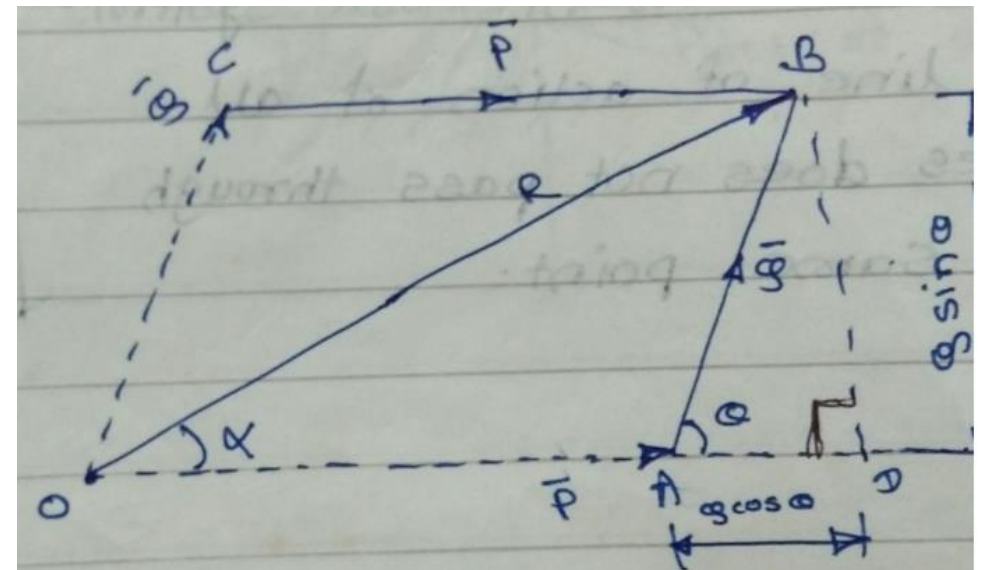 C
P̅
B
Q̅
R
Q̅
Q sin θ
α
θ
O
P̅
A
Q cos θ
D